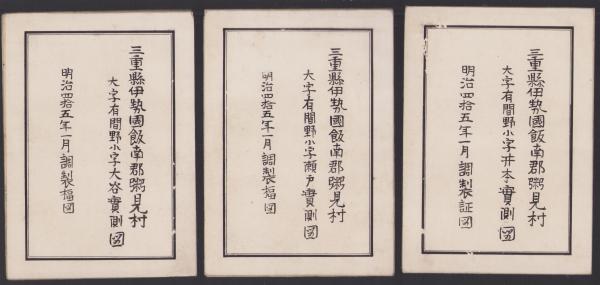 三重縣伊勢國飯南郡粥見村
大字有間野小字井本實測図
明治四拾五年一月調製証図
三重縣伊勢國飯南郡粥見村
大字有間野小字瀬戸實測図
明治四拾五年一月調製福図
三重縣伊勢國飯南郡粥見村
大字有間野小字大谷實測図
明治四拾五年一月調製福図